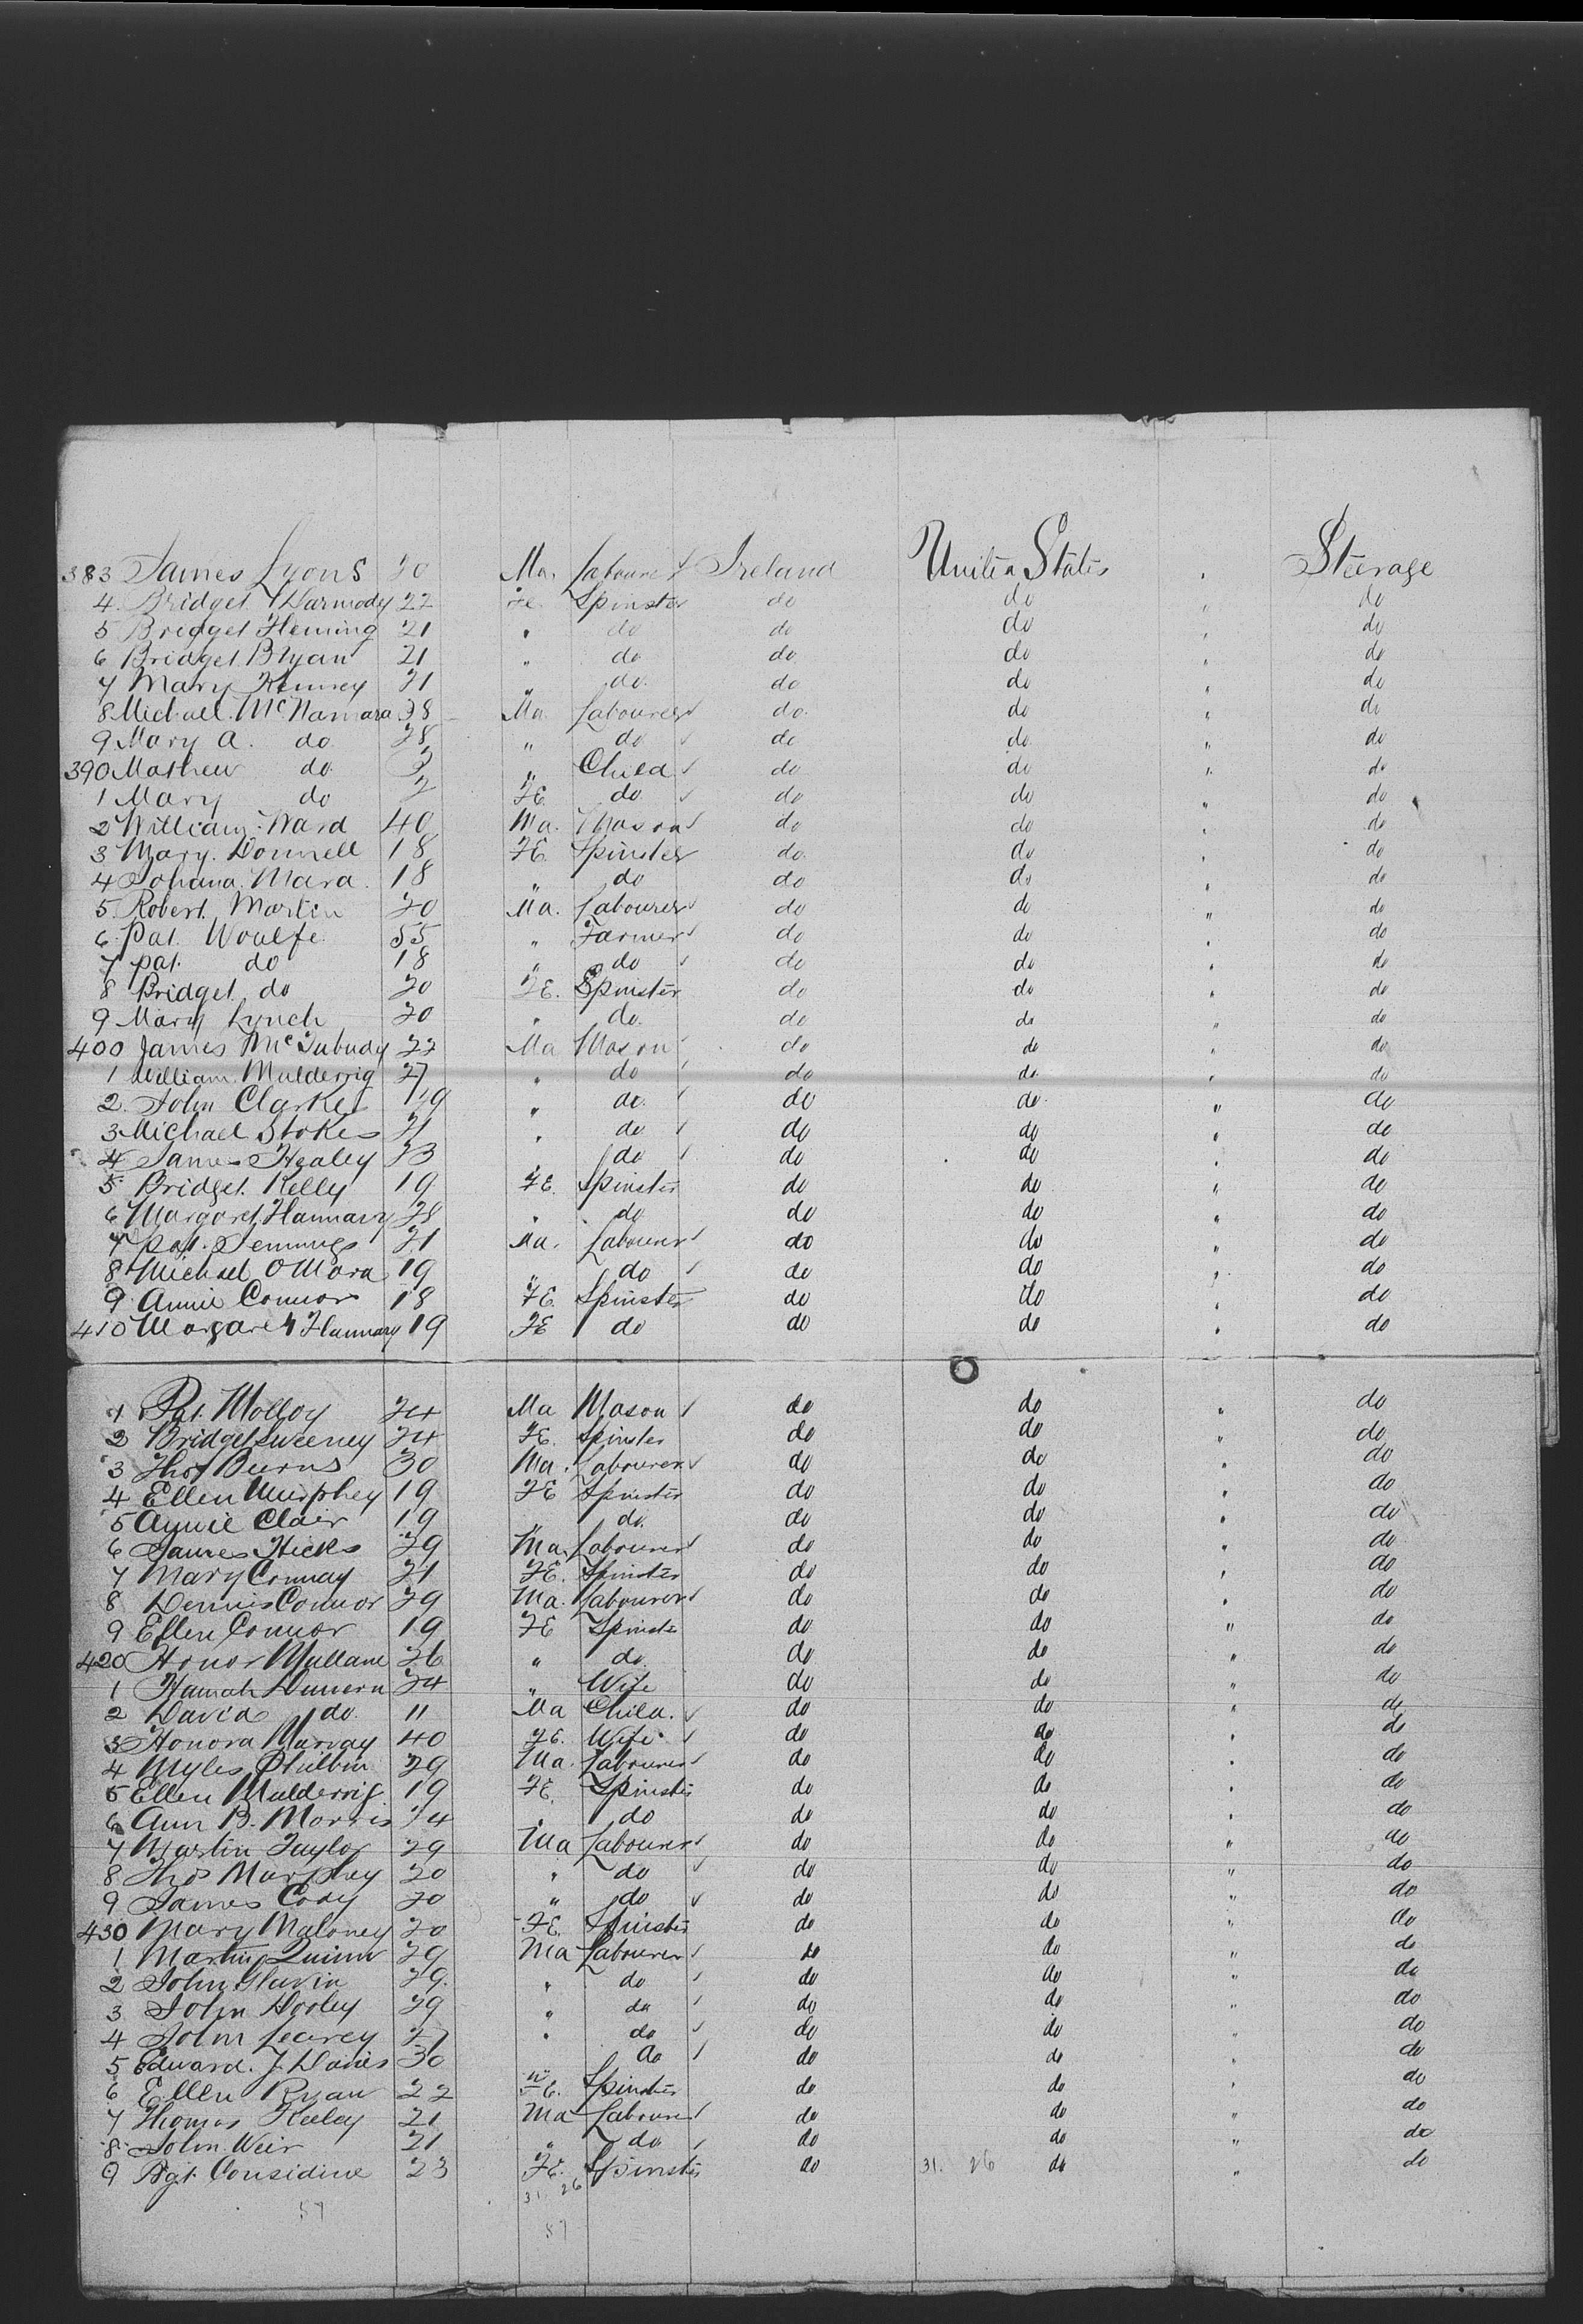 383 James Lyons 20 Ma. Labourer Ireland United States " Steerage
4 Bridget Darmody 22 Fe. Spinster do do " do
5 Bridget Fleming 21 " do do do " do
6 Bridget Bryan 21 " do do do " do
7 Mary Kenney 21 " do. do do " do
8 Michael McNamara 38 Ma. Labourer do. do " do
9 Mary A. do 28 " do do do " do
390 Mathew do 3 " Child do do " do
1 Mary do 2 FE. do do do " do
2 William Ward 40 Ma. Mason do do " do
3 Mary Donnell 18 FE. Spinster do. do " do
4 Johana Mara 18 " do do do " do
5 Robert Martin 20 Ma. Labourer do do " do
6 Pat. Woulfe 55 " Farmer do do " do
7 Pat. do 18 " do do do " do
8 Bridget do 20 FE. Spinster do do " do
9 Mary Lynch 20 " do. do do " do
400 James 22 Ma Mason do do " do
1 William Mulderrig 27 " do do do " do
2 John Clarkes 19 " do. do do " do
3 Michael Stokes 21 " do do do " do
4 James Healey 23 do do do " do
5 Bridget Kelly 19 FE. Spinster do do " do
6 Margaret Flannary 28 " do do do " do
7 Pat. Jennings 21 Ma. Labourer do do " do
8 Michael O Mara 19 " do do do " do
9 Annie Connor 18 FE. Spinster do do " do
410 Margaret Flannary 19 FE do do do " do
1 Pat. Molloy 24 Ma Mason do do " do
2 Bridget Sweeney 24 FE. Spinster do do " do
3 Thos Burns 30 Ma. Labourer do do " do
4 Ellen Murphey 19 FE Spinster do do " do
5 Annie Clair 19 " do. do do " do
6 James Hicks 29 Ma. Labourer do do " do
7 Mary Conway 21 FE. Spinster do do " do
8 Dennis Connor 29 Ma. Labourer do do " do
9 Ellen Connor 19 FE Spinster do do " do
420 Honor Mullane 26 " do. do do " do
1 Hannah 24 " Wife do do " do
2 David do 11 Ma Child. do do " do
3 Honora 40 FE. Wife do do " do
4 Myles Philbin 29 Ma. Labourer do do " do
5 Ellen Mulderrig 19 FE. Spinster do do " do
6 Ann B. Morris 24 " do do do " do
7 Martin Taylor 29 Ma Labourer do do " do
8 Thos Murphey 20 " do do do " do
9 James Cody 20 " do do do " do
430 Mary Maloney 20 FE. Spinster do do " do
1 Martin Quinn 29 Ma Labourer do do " do
2 John Glavin 29. " do do do " do
3 John Hooley 29 " do do do " do
4 John Learey 27 " do do do " do
5 Edward. J. Davies 30 do do do " do
6 Ellen Ryan 22 FE. Spinster do do " do
7 Thomas Keeley 21 Ma Labourer do do " do
8 John Weir 21 " do do do " do
9 Bgt. Considine 23 FE. Spinster do 31. 26 do " do
31. 26
57
57